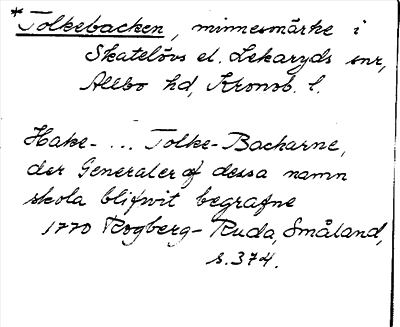 *Tolkebacken, minnesmärke i
Skatelövs el. Lekaryds snr,
Allbo hd, Kronob. l.
Hake- ... Tolke-Backarne,
der Generaler af dessa namn
skola blifwit begrafne
1770 Rogberg-Ruda, Småland,
s. 374.